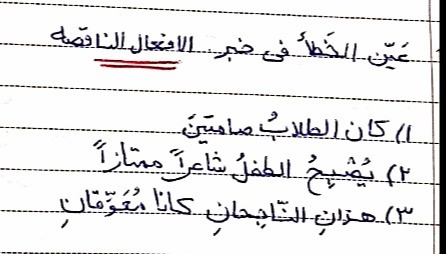 عَيّن الخَطأ فی خبر الافعال الناقصه
١) كان الطلابُ صامتَينَ
٢) يُصْبِحُ الطفلُ شاعراً ممتازاً
٣) هذانِ النّاجِحانِ كانا مُعَوَّقانِ